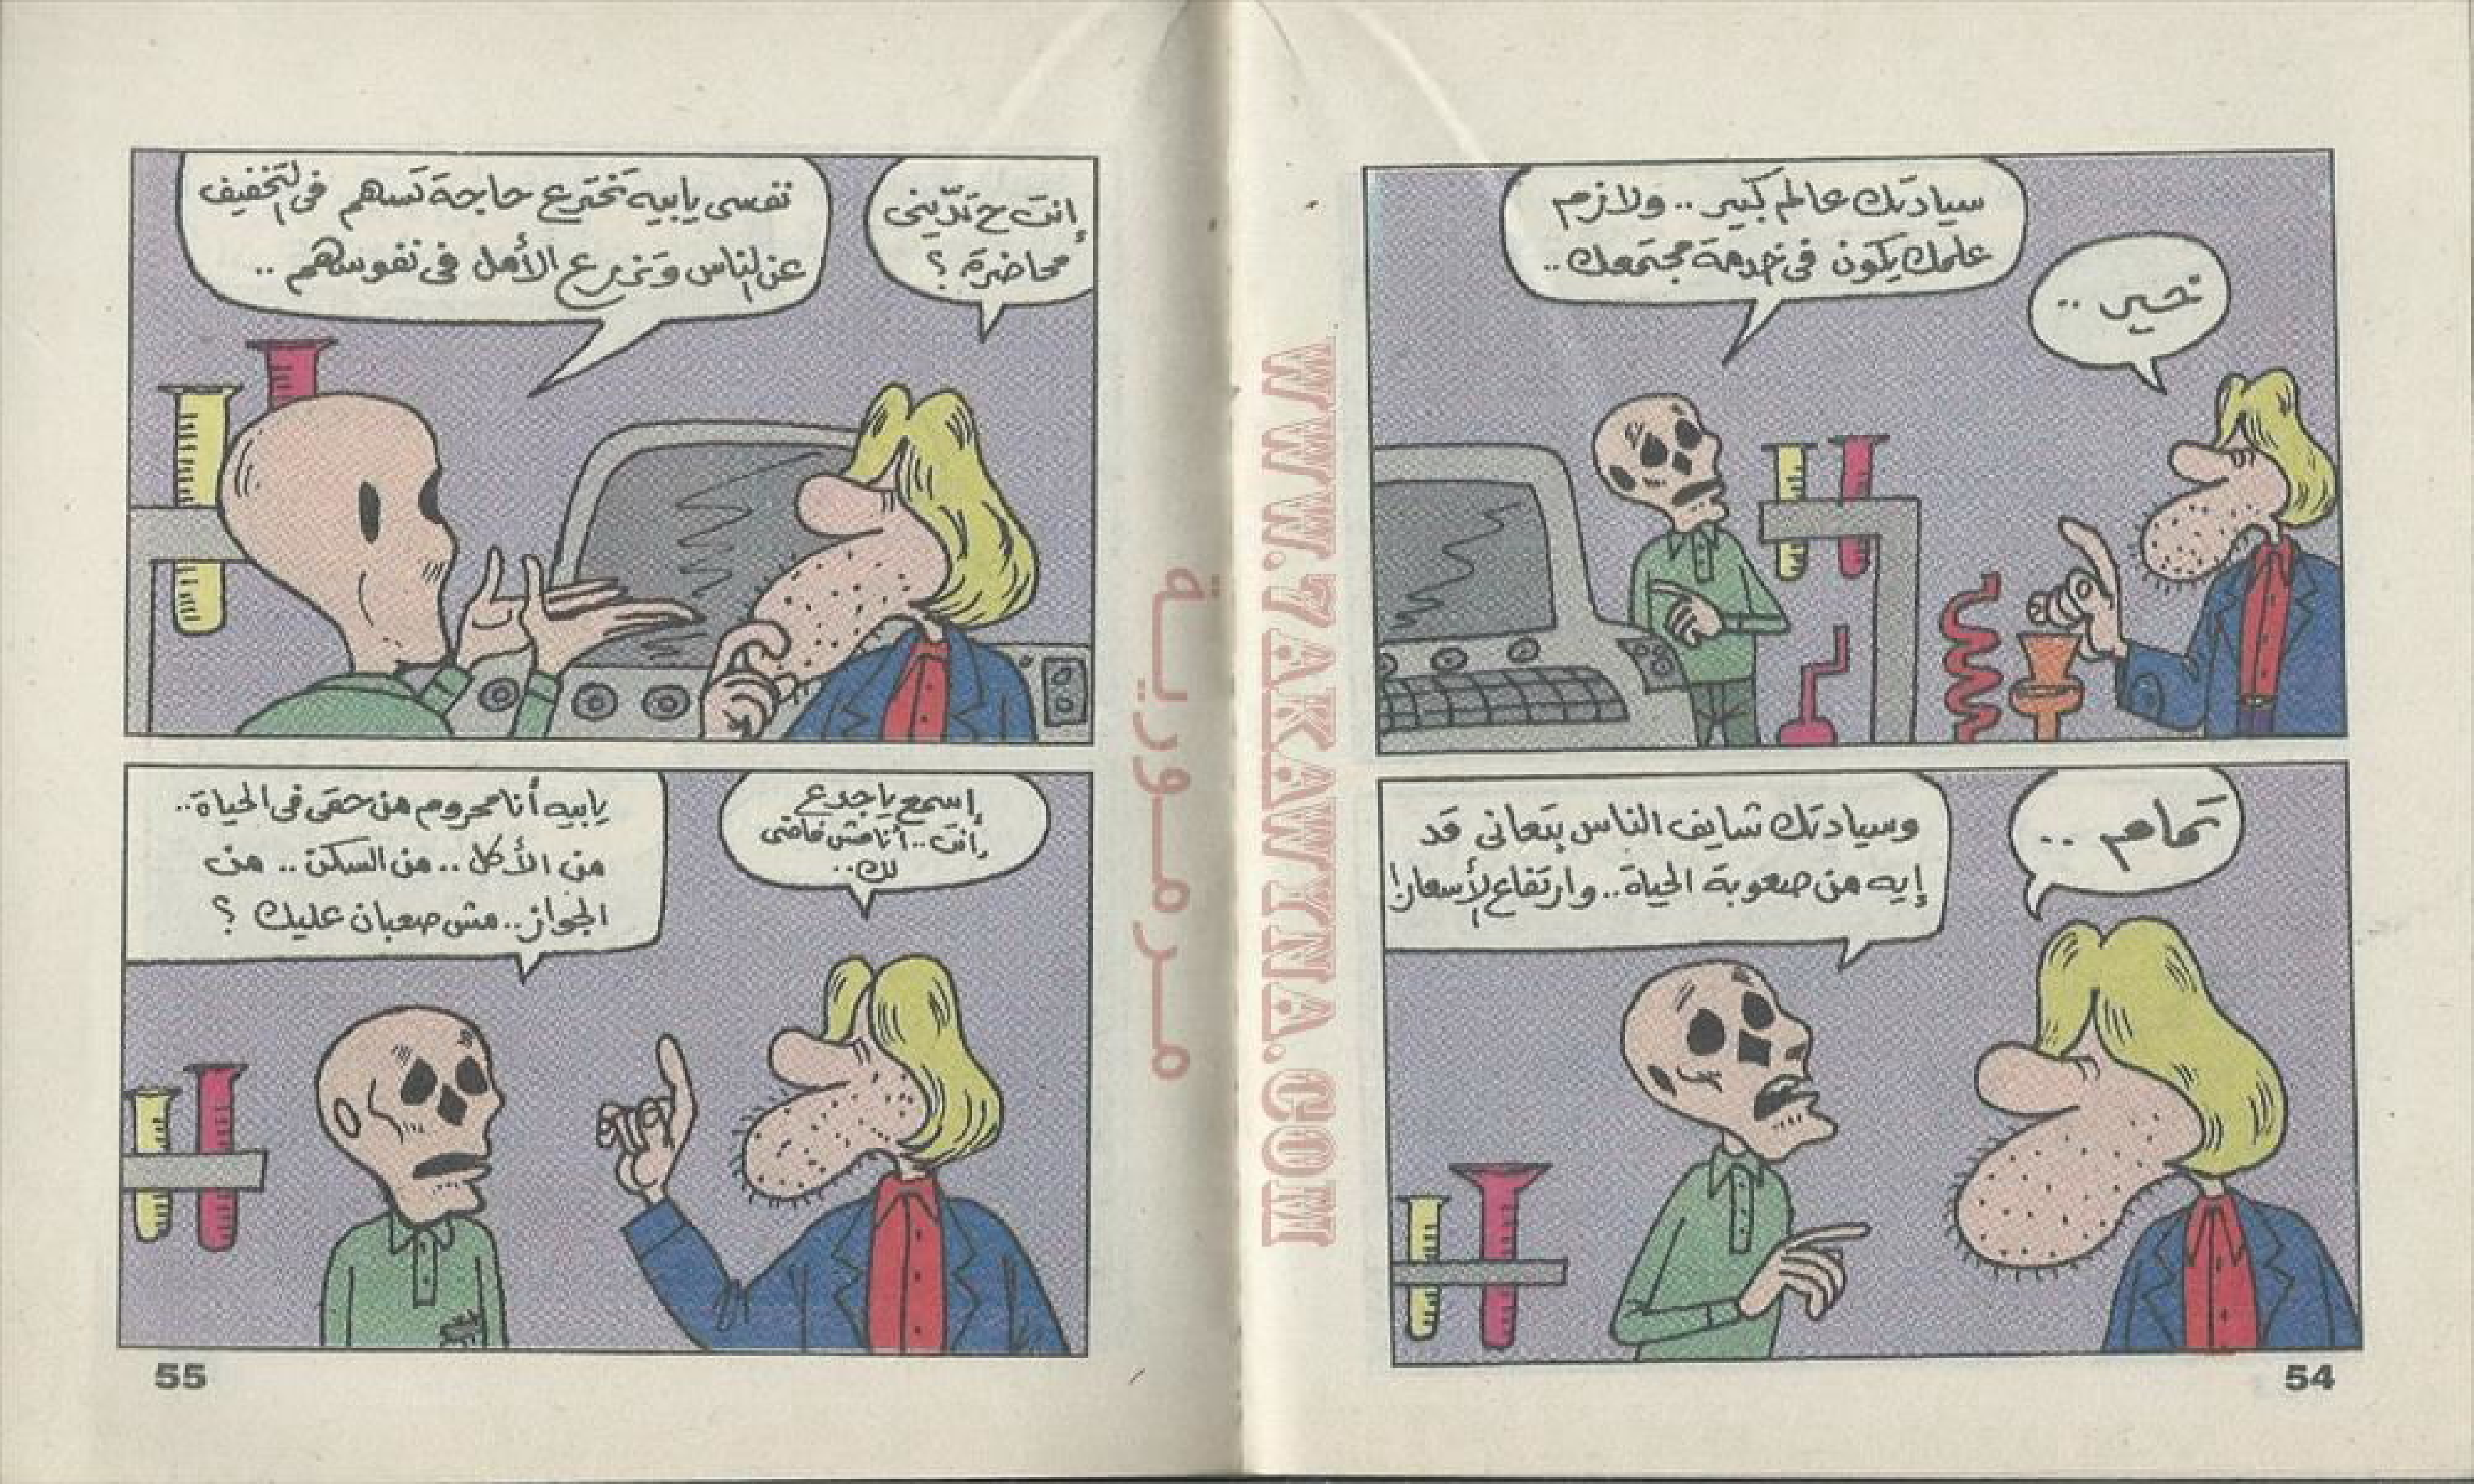 خير ..
سيادتك عالم كبير .. ولازم
علمك يكون فى خدمة مجتمعك ..
تمام ..
وسيادتك شايف الناس بتعانى قد
إيه من صعوبة الحياة .. وارتفاع الأسعار!
54
WWW.7AKAWYNA.COM
مرمورية
إنت ح تدّينى
محاضرة ؟
نفسى يابيه تخترع حاجة تسهم فى التخفيف
عن الناس وتزرع الأمل فى نفوسهم ..
إسمع ياجدع
إنت .. أنا مش فاضى
لك ..
يابيه أنا محروم من حقى فى الحياة ..
من الأكل .. من السكن .. من
الجواز .. مش صعبان عليك ؟
55